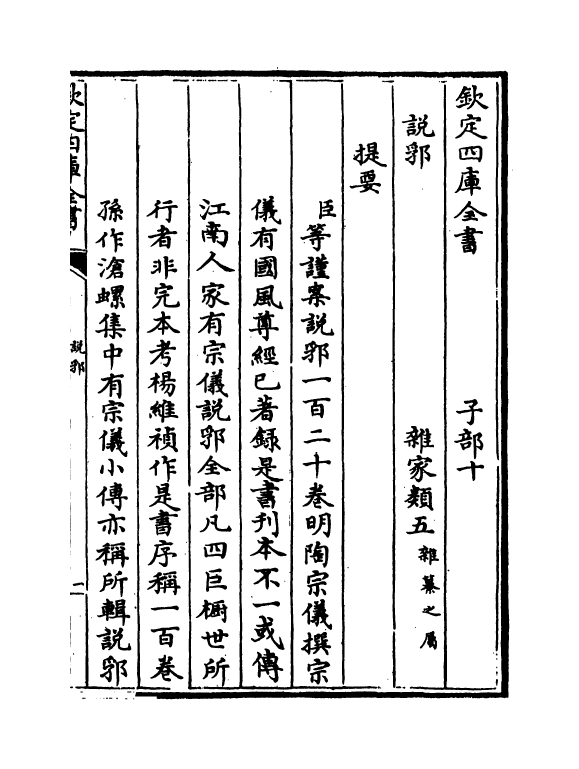 欽定四庫全書 子部十
說郛 雜家類五雜纂之屬
提要
臣等謹案說郛一百二十卷明陶宗儀撰宗
儀有國風尊經已著録是書刊本不一或傳
江南人家有宗儀說郛全部凡四巨櫥世所
行者非完本考楊維禎作是書序稱一百卷
孫作滄螺集中有宗儀小傳亦稱所輯說郛
欽定四庫全書
說郛